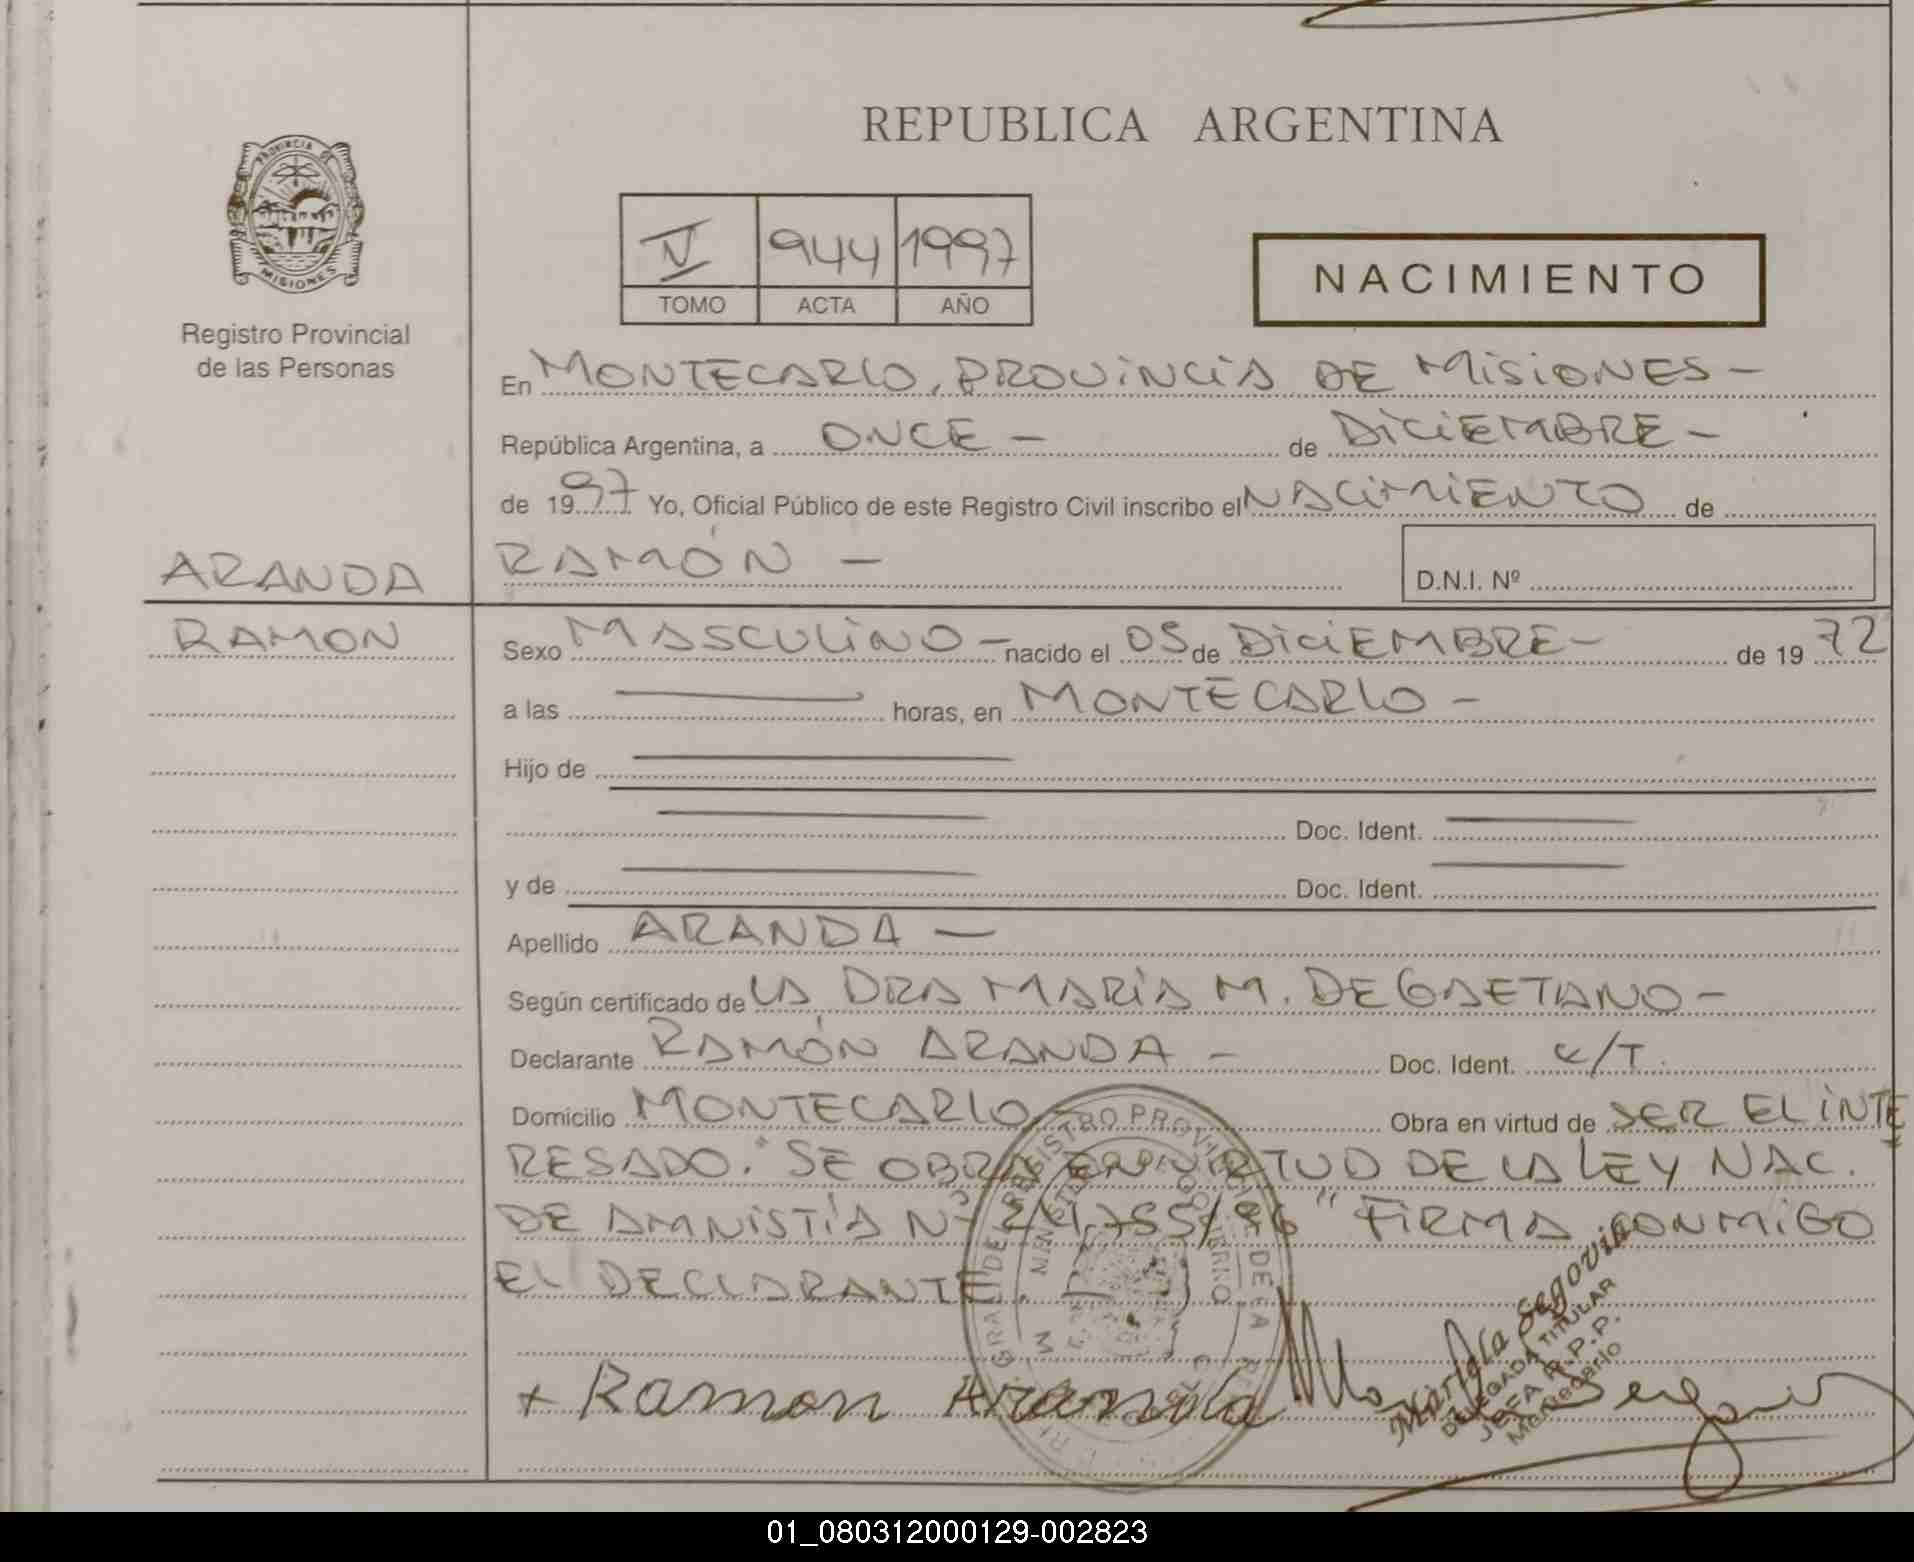 REPUBLICA ARGENTINA
PROVINCIA DE
MISIONES
Registro Provincial
de las Personas
V 944 1997
TOMO ACTA AÑO
NACIMIENTO
En MONTECARLO, PROVINCIA DE MISIONES -
República Argentina, a ONCE - de DICIEMBRE -
de 1997 Yo, Oficial Público de este Registro Civil inscribo el NACIMIENTO de
ARANDA RAMÓN -
D.N.I. Nº
RAMON Sexo MASCULINO - nacido el 05 de DICIEMBRE - de 1972
a las horas, en MONTECARLO -
Hijo de
Doc. Ident.
y de Doc. Ident.
Apellido ARANDA -
Según certificado de LA DRA MARIA M. DE GAETANO -
Declarante RAMÓN ARANDA - Doc. Ident. C/T.
Domicilio MONTECARLO - Obra en virtud de SER EL INTE
RESADO. "SE OBRA EN VIRTUD DE LA LEY NAC.
DE AMNISTÍA Nº 24.755/96" FIRMA CONMIGO
EL DECLARANTE.
+ Ramon Aranda
Mariela Segovia
DELEGADA TITULAR
JEFA R.P.P.
Montecarlo
01_080312000129-002823